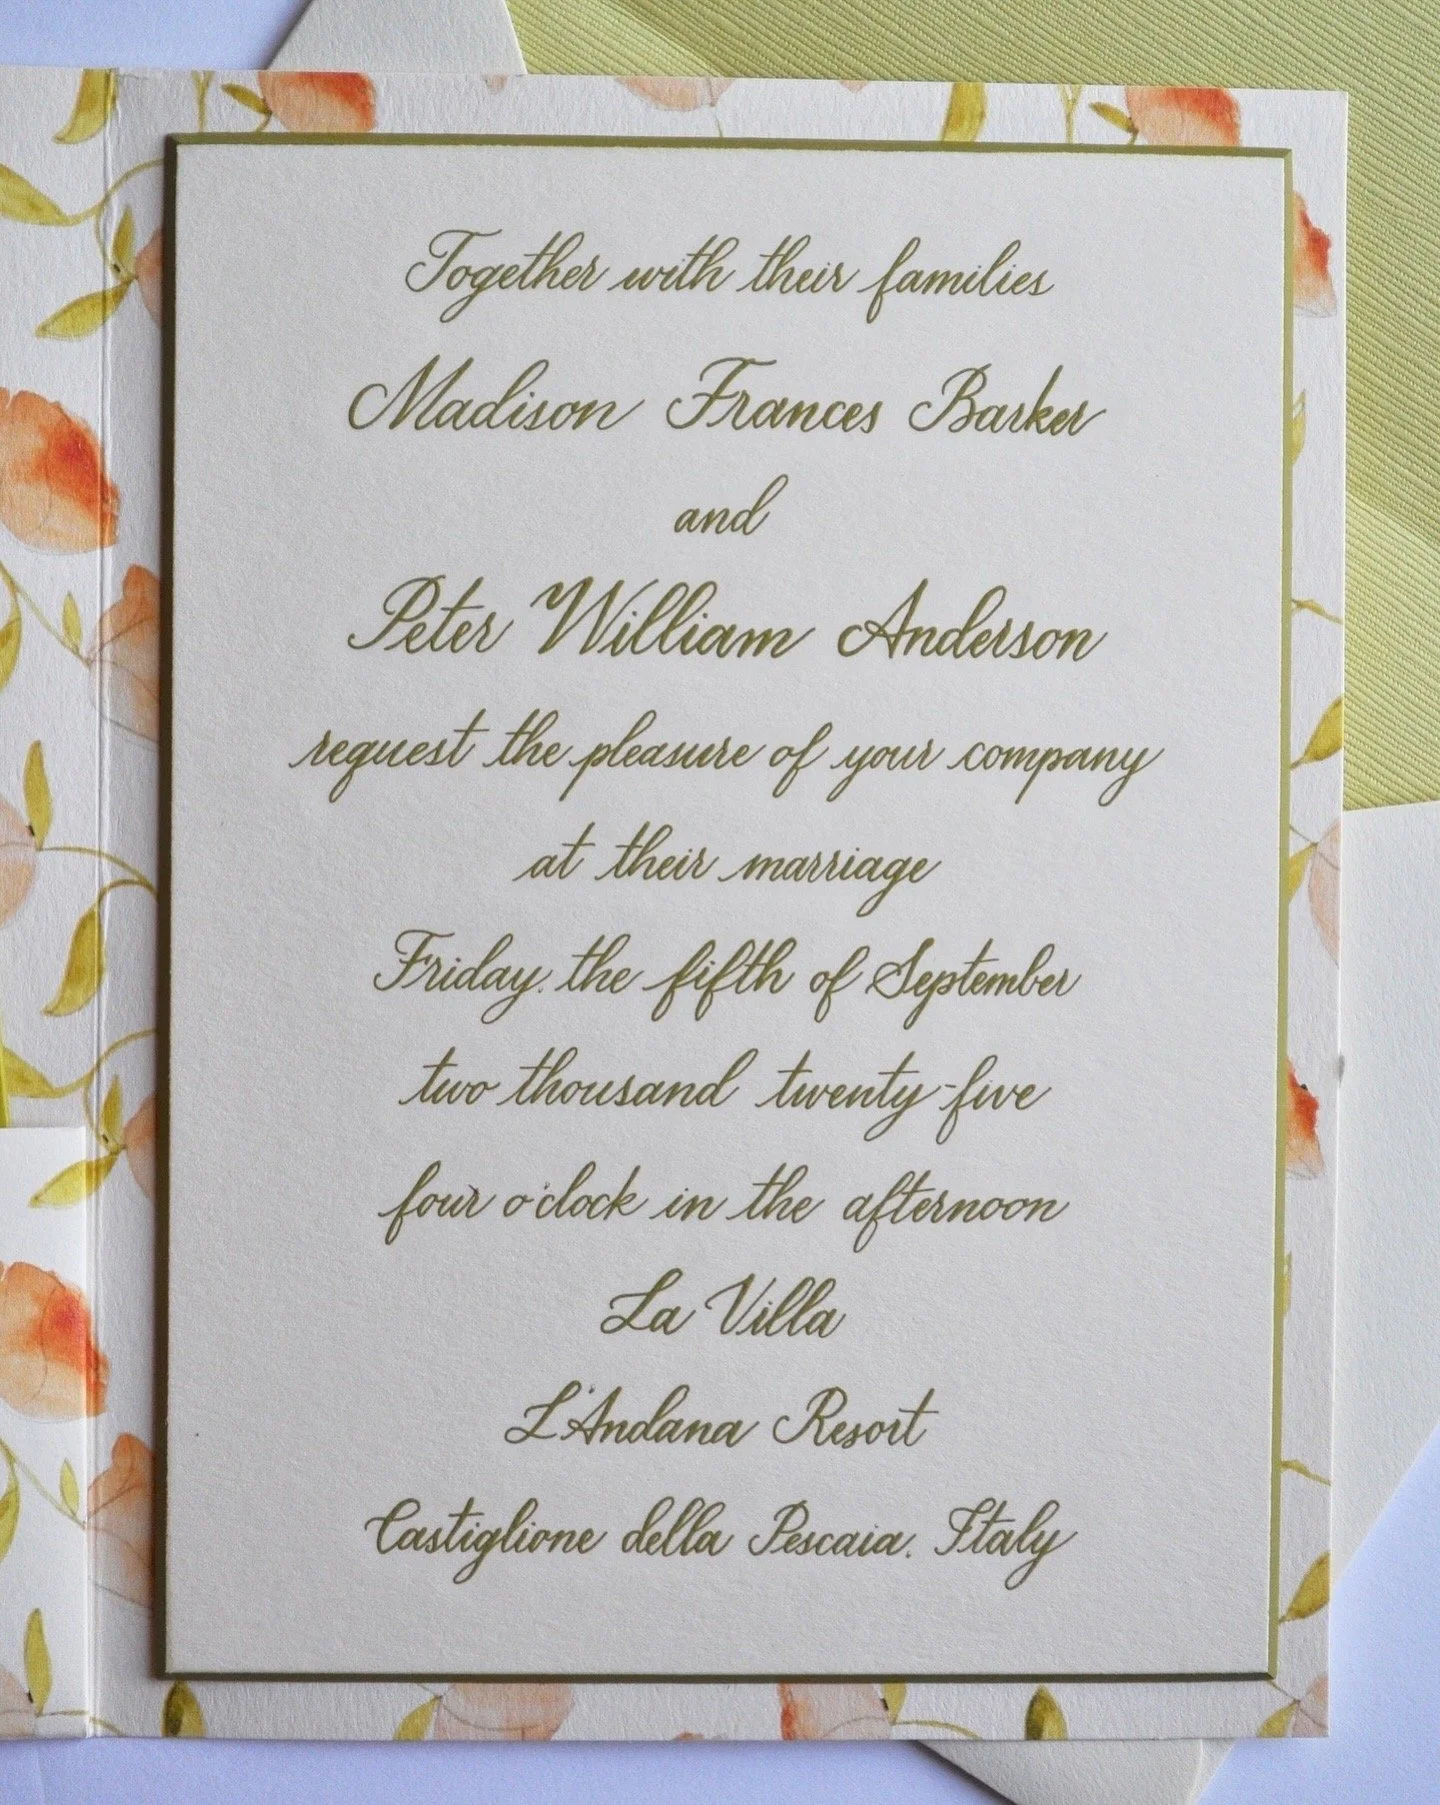 Together with their families
Madison Frances Barker
and
Peter William Anderson
request the pleasure of your company
at their marriage
Friday, the fifth of September
two thousand twenty-five
four o'clock in the afternoon
La Villa
L'Andana Resort
Castiglione della Pescaia, Italy